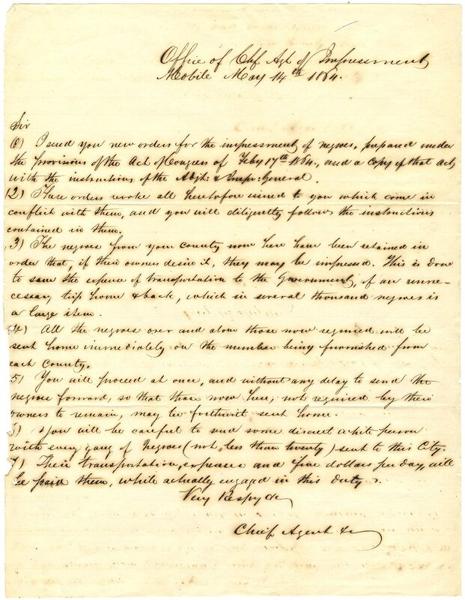 Office of Chf Agt of Impressment
Mobile May 14th 1864.
Sir
1) I send you new orders for the impressment of negroes, prepared under
the provisions of the Act of Congress of Feby 17th 1864, and a copy of that Act,
with the instructions of the Adjt: & Inspr: General.
2) These orders revoke all heretofore issued to you which come in
conflict with them, and you will diligently follow the instructions
contained in them.
3) The negroes from your County now here have been retained in
order that, if their owners desire it, they may be impressed. This is done
to save the expense of transportation to the Government, of an unne-
cessary trip home & back, which in several thousand negroes is
a large item.
4) All the negroes over and above those now required will be
sent home immediately on the number being furnished from
each County.
5) You will proceed at once, and without any delay to send the
negroes forward, so that those now here, not required by their
owners to remain, may be forthwith sent home.
) You will be careful to send some discreet white person
with every gang of negroes (not, less than twenty) sent to this City.
7) Their transportation, expenses and five dollars per day, will
be paid them, while actually engaged in this duty.
Very Respy &c
Chief Agent &c